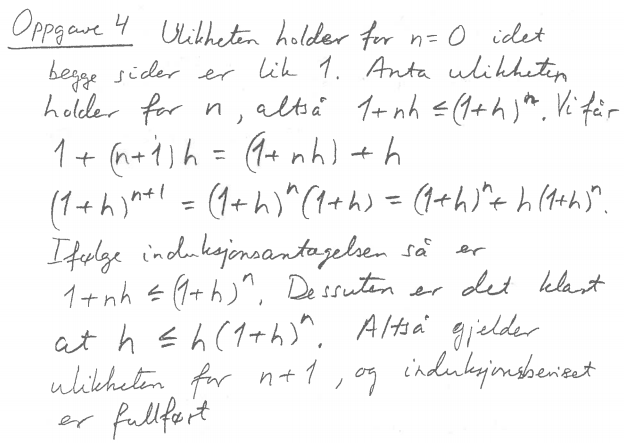 Oppgave 4 Ulikheten holder for n=0 idet
begge sider er lik 1. Anta ulikheten
holder for n, altså 1+nh ≤ (1+h)^n. Vi får
1+(n+1)h = (1+nh)+h
(1+h)^{n+1} = (1+h)^n(1+h) = (1+h)^n + h(1+h)^n.
Ifølge induksjonsantagelsen så er
1+nh ≤ (1+h)^n. Dessuten er det klart
at h ≤ h(1+h)^n. Altså gjelder
ulikheten for n+1, og induksjonsbeviset
er fullført